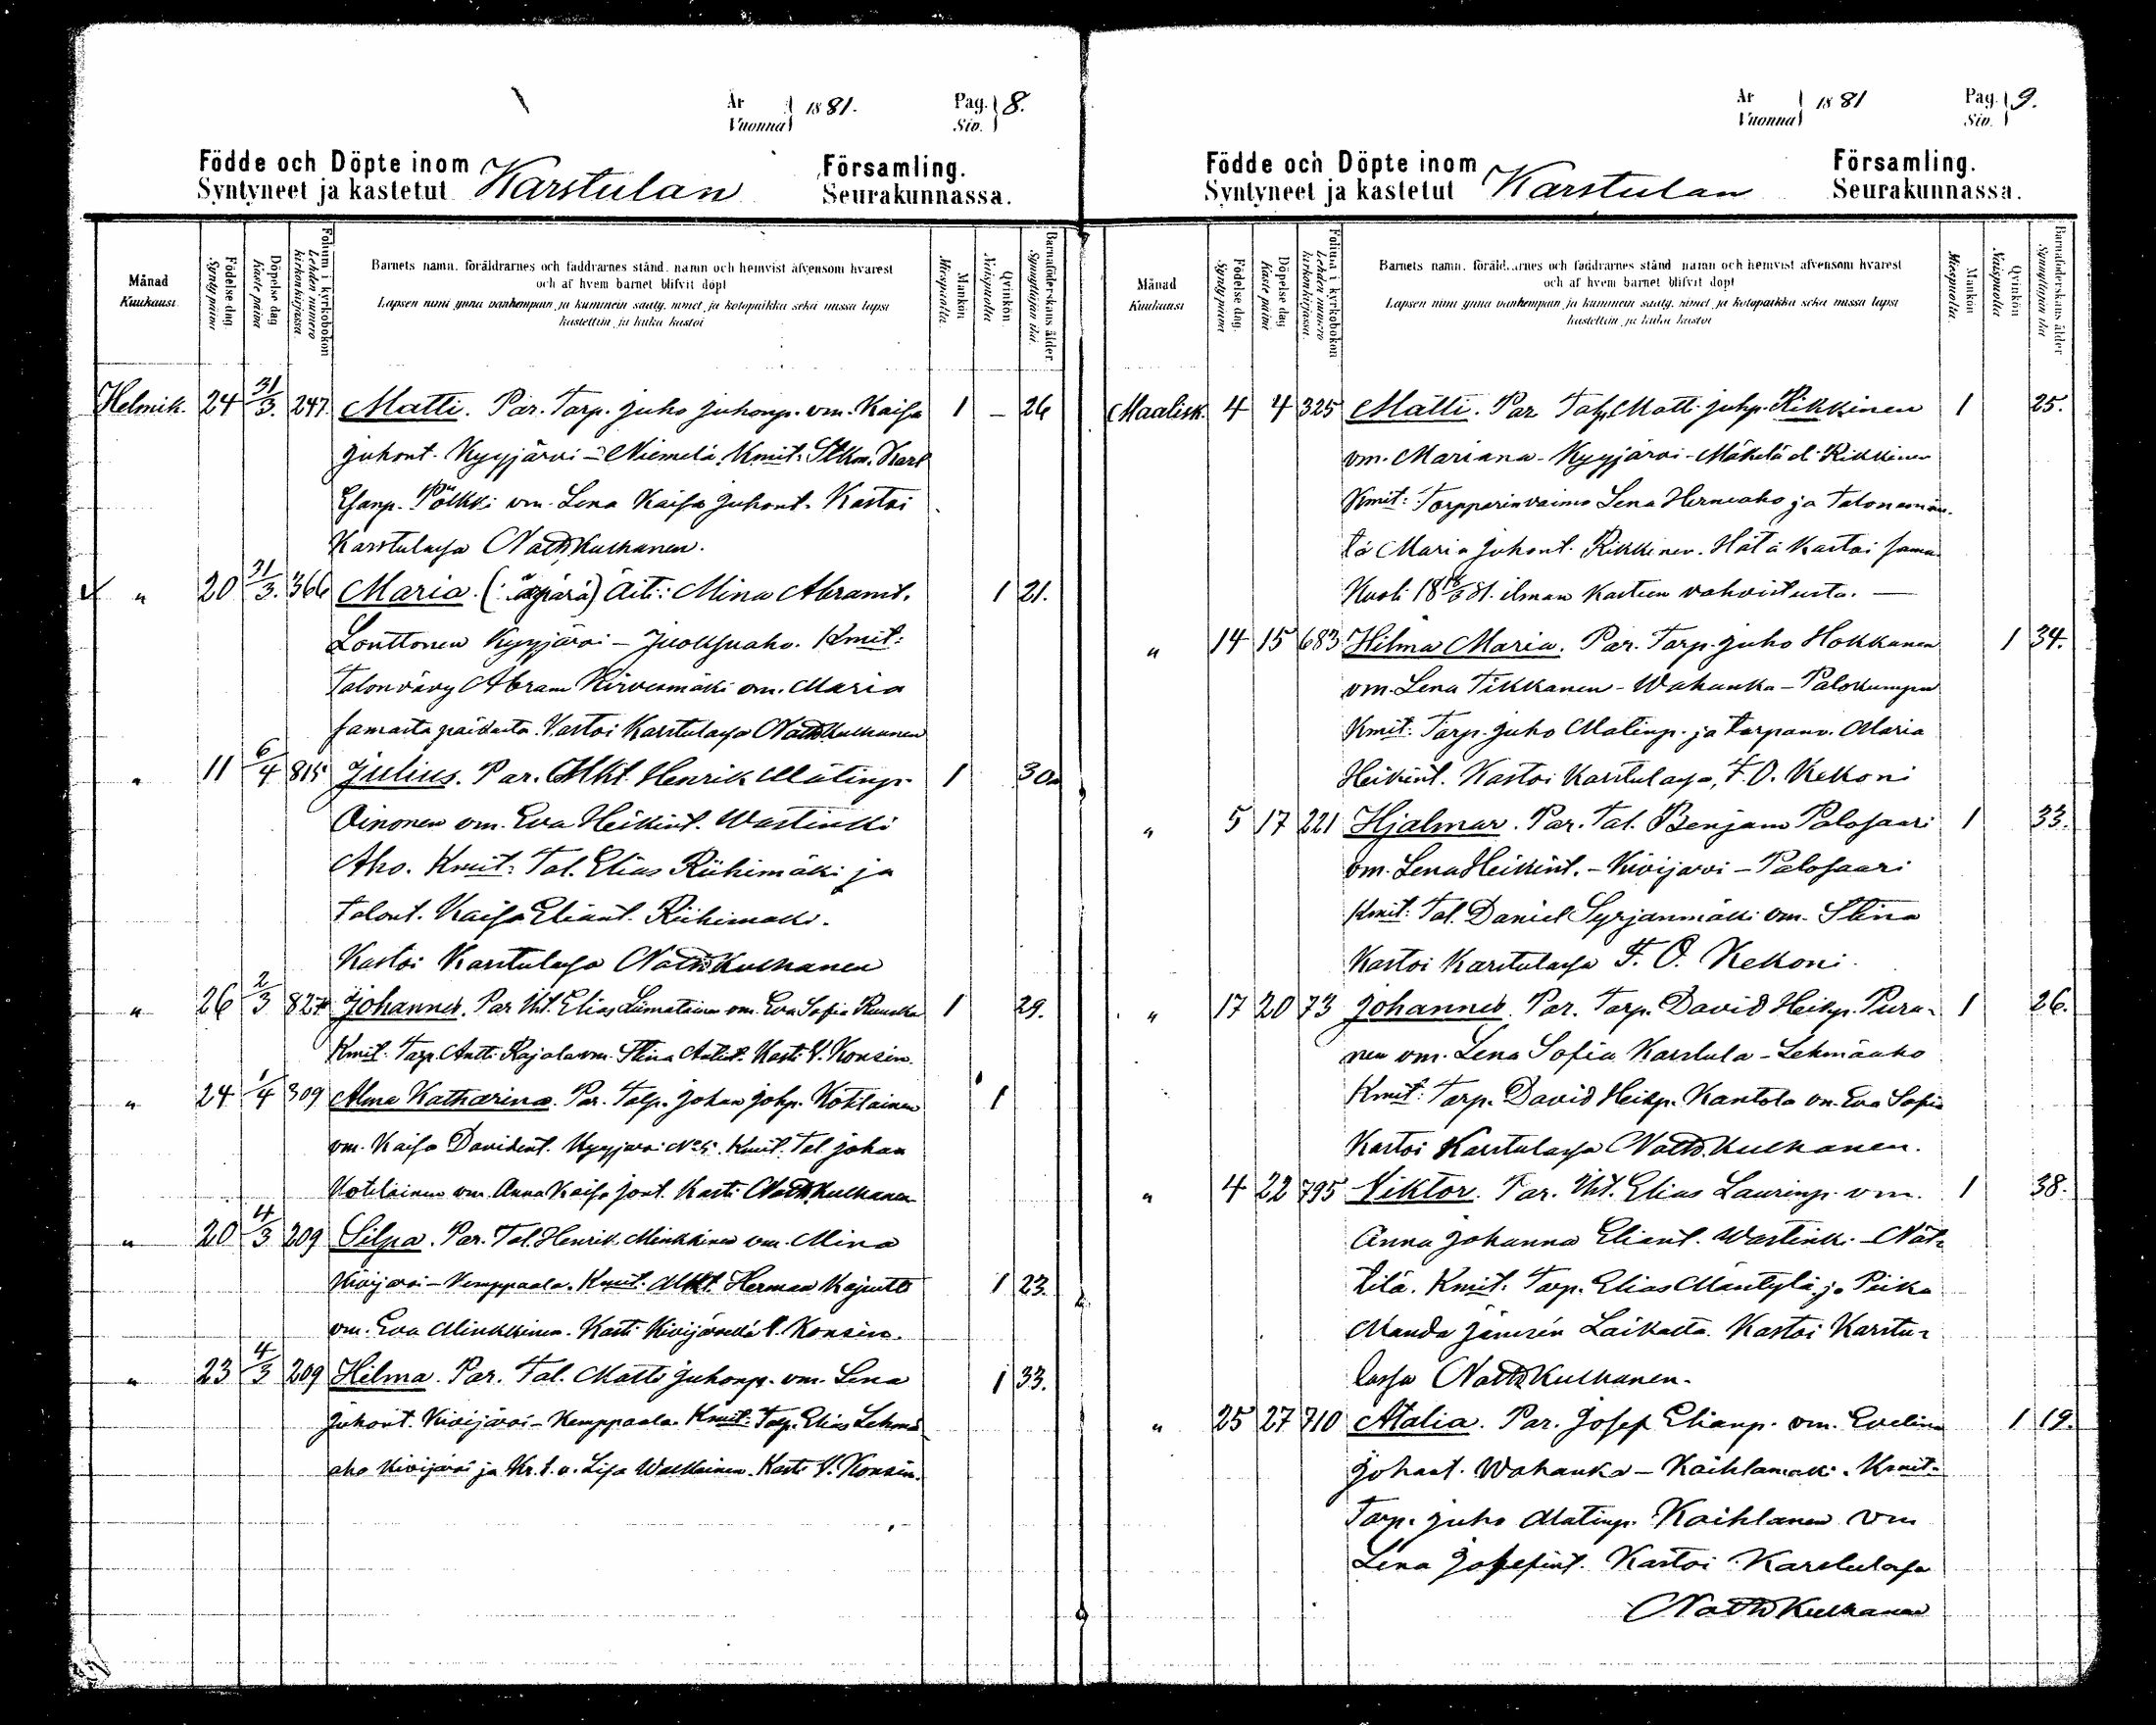 År
Vuonna
1881.
Pag.
Siv.
8.
Födde och Döpte inom
Syntyneet ja kastetut
Karstulan
Församling.
Seurakunnassa.
Månad
Kuukausi
Födelse dag.
Synty päivä
Döpelse dag
Kaste päivä
Folium i kyrkoboken
Lehden numero
kirkonkirjassa.
Barnets namn, föräldrarnes och faddrarnes stånd, namn och hemvist äfvensom hvarest
och af hvem barnet blifvit döpt
Lapsen nimi ynnä vanhempain ja kummein sääty, nimet ja kotopaikka sekä missä lapsi
kastettiin ja kuka kastoi
Mankön
Miespuolta.
Qvinkön
Naispuolta
Barnaföderskans ålder.
Synnyttäjän ikä.
Helmik. 24 31/3. 247. Matti. Par. Torp. Juho Juhonp. vm. Kaisa 1 – 26
Juhont. Kyyjärvi – Niemelä. Kmit: Karl
Esanp. Pölkki vm. Lena Kaisa Juhont. Kastoi
Karstulassa Nath. Kulhanen.
" 20 31/3. 366 Maria. (: äpärä) Äiti: Mina Abramt. 1 21.
Louttonen Kyyjärvi – Kmit:
Talonvävy Abram Kirvesmäki vm. Maria
samasta paikasta. Kastoi Karstulassa Nath. Kulhanen
" 11 6/4 815 Julius. Par. Mkt. Henrik Matinp. 1 30
Oinonen vm. Eva Heikint. Wastinki
Aho. Kmit: Tal. Elias Riihimäki ja
Talont. Kaisa Eliant. Riihimäki.
Kastoi Karstulassa Nath. Kulhanen
" 26 2/3 827 Johannes. Par Elias Liimatainen vm. Eva Sofia 1 29.
Kmit: Torp. Antti Rajala vm. Stina Antint. Kasti V. Konsin.
" 24 1/4 309 Alma Katharina. Par. Talp. Johan Johp. Kotilainen 1
vm. Kaisa Davidint. Kyyjärvi Kmit. Tal. Johan
Kotilainen vm. Anna Kaisa Kasti Nath. Kulhanen
" 20 4/3 209 Silpa. Par. Tal. Henrik Minkkinen vm. Mina
Kivijärvi – Kemppaala. Kmit: Mkt. Herman Kajutto 1 23.
vm. Eva Minkkinen. Kasti Kivijärvellä V. Konsin.
" 23 4/3 209 Hilma. Par. Tal. Matti Juhonp. vm. Lena 1 33.
Juhont. Kivijärvi – Kemppaala. Kmit: Torp. Elias Lehmä
aho Kivijärvi ja Lisa Kasti V. Konsin.
År
Vuonna
1881
Pag.
Siv.
9.
Födde och Döpte inom
Syntyneet ja kastetut
Karstulan
Församling.
Seurakunnassa.
Månad
Kuukausi
Födelse dag.
Synty päivä
Döpelse dag
Kaste päivä
Folium i kyrkoboken
Lehden numero
kirkonkirjassa.
Barnets namn, föräldrarnes och faddrarnes stånd, namn och hemvist äfvensom hvarest
och af hvem barnet blifvit döpt
Lapsen nimi ynnä vanhempain ja kummein sääty, nimet ja kotopaikka sekä missä lapsi
kastettiin ja kuka kastoi
Mankön
Miespuolta.
Qvinkön
Naispuolta
Barnaföderskans ålder
Synnyttäjän ikä
Maalisk. 4 4 325 Matti. Par Talp. Matti Juhp. Rikkinen 1 25.
vm. Mariana – Kyyjärvi – Mäkelä Rikkinen
Kmit: Torpparinvaimo Lena Herneaho ja Talonemän
tä Maria Juhont. Rikkinen. Hätä kastoi sama
Kuoli 81. ilman kasteen vahvistusta. –
" 14 15 683 Hilma Maria. Par. Torp. Juho Hokkanen 1 34.
vm. Lena Tikkanen – Wahanka – Palokumpu
Kmit: Torp. Juho Matinp. ja torpanv. Maria
Heikint. Kastoi Karstulassa, F. O. Kekoni
" 5 17 221 Hjalmar. Par. Tal. Benjam Palosaari 1 33.
vm. Lena Heikint. – Kivijärvi – Palosaari
Kmit: Tal. Daniel Syrjänmäki vm. Stina
Kastoi Karstulassa F. O. Kekoni.
" 17 20 73 Johannes. Par. Torp. David Heikp. Pura- 1 26.
nen vm. Lena Sofia Karstula – Lehmäaho
Kmit: Torp. David Heikp. Kantola vm. Eva Sofia
Kastoi Karstulassa Nath. Kulhanen.
" 4 22 795 Viktor. Par. Elias Laurinp. vm. 1 38.
Anna Johanna Eliant. Wastinki – Nät-
tilä. Kmit: Torp. Elias Mäntylä ja Piika
Manda Kastoi Karstu-
lassa Nath. Kulhanen.
" 25 27 710 Atalia. Par. Josef Elianp. vm. Evelina 1 19.
Johant. Wahanka – Kaihlamäki. Kmit:
Torp. Juho Matinp. Kaihlanen vm
Lena Josefint. Kastoi Karstulassa
Nath. Kulhanen